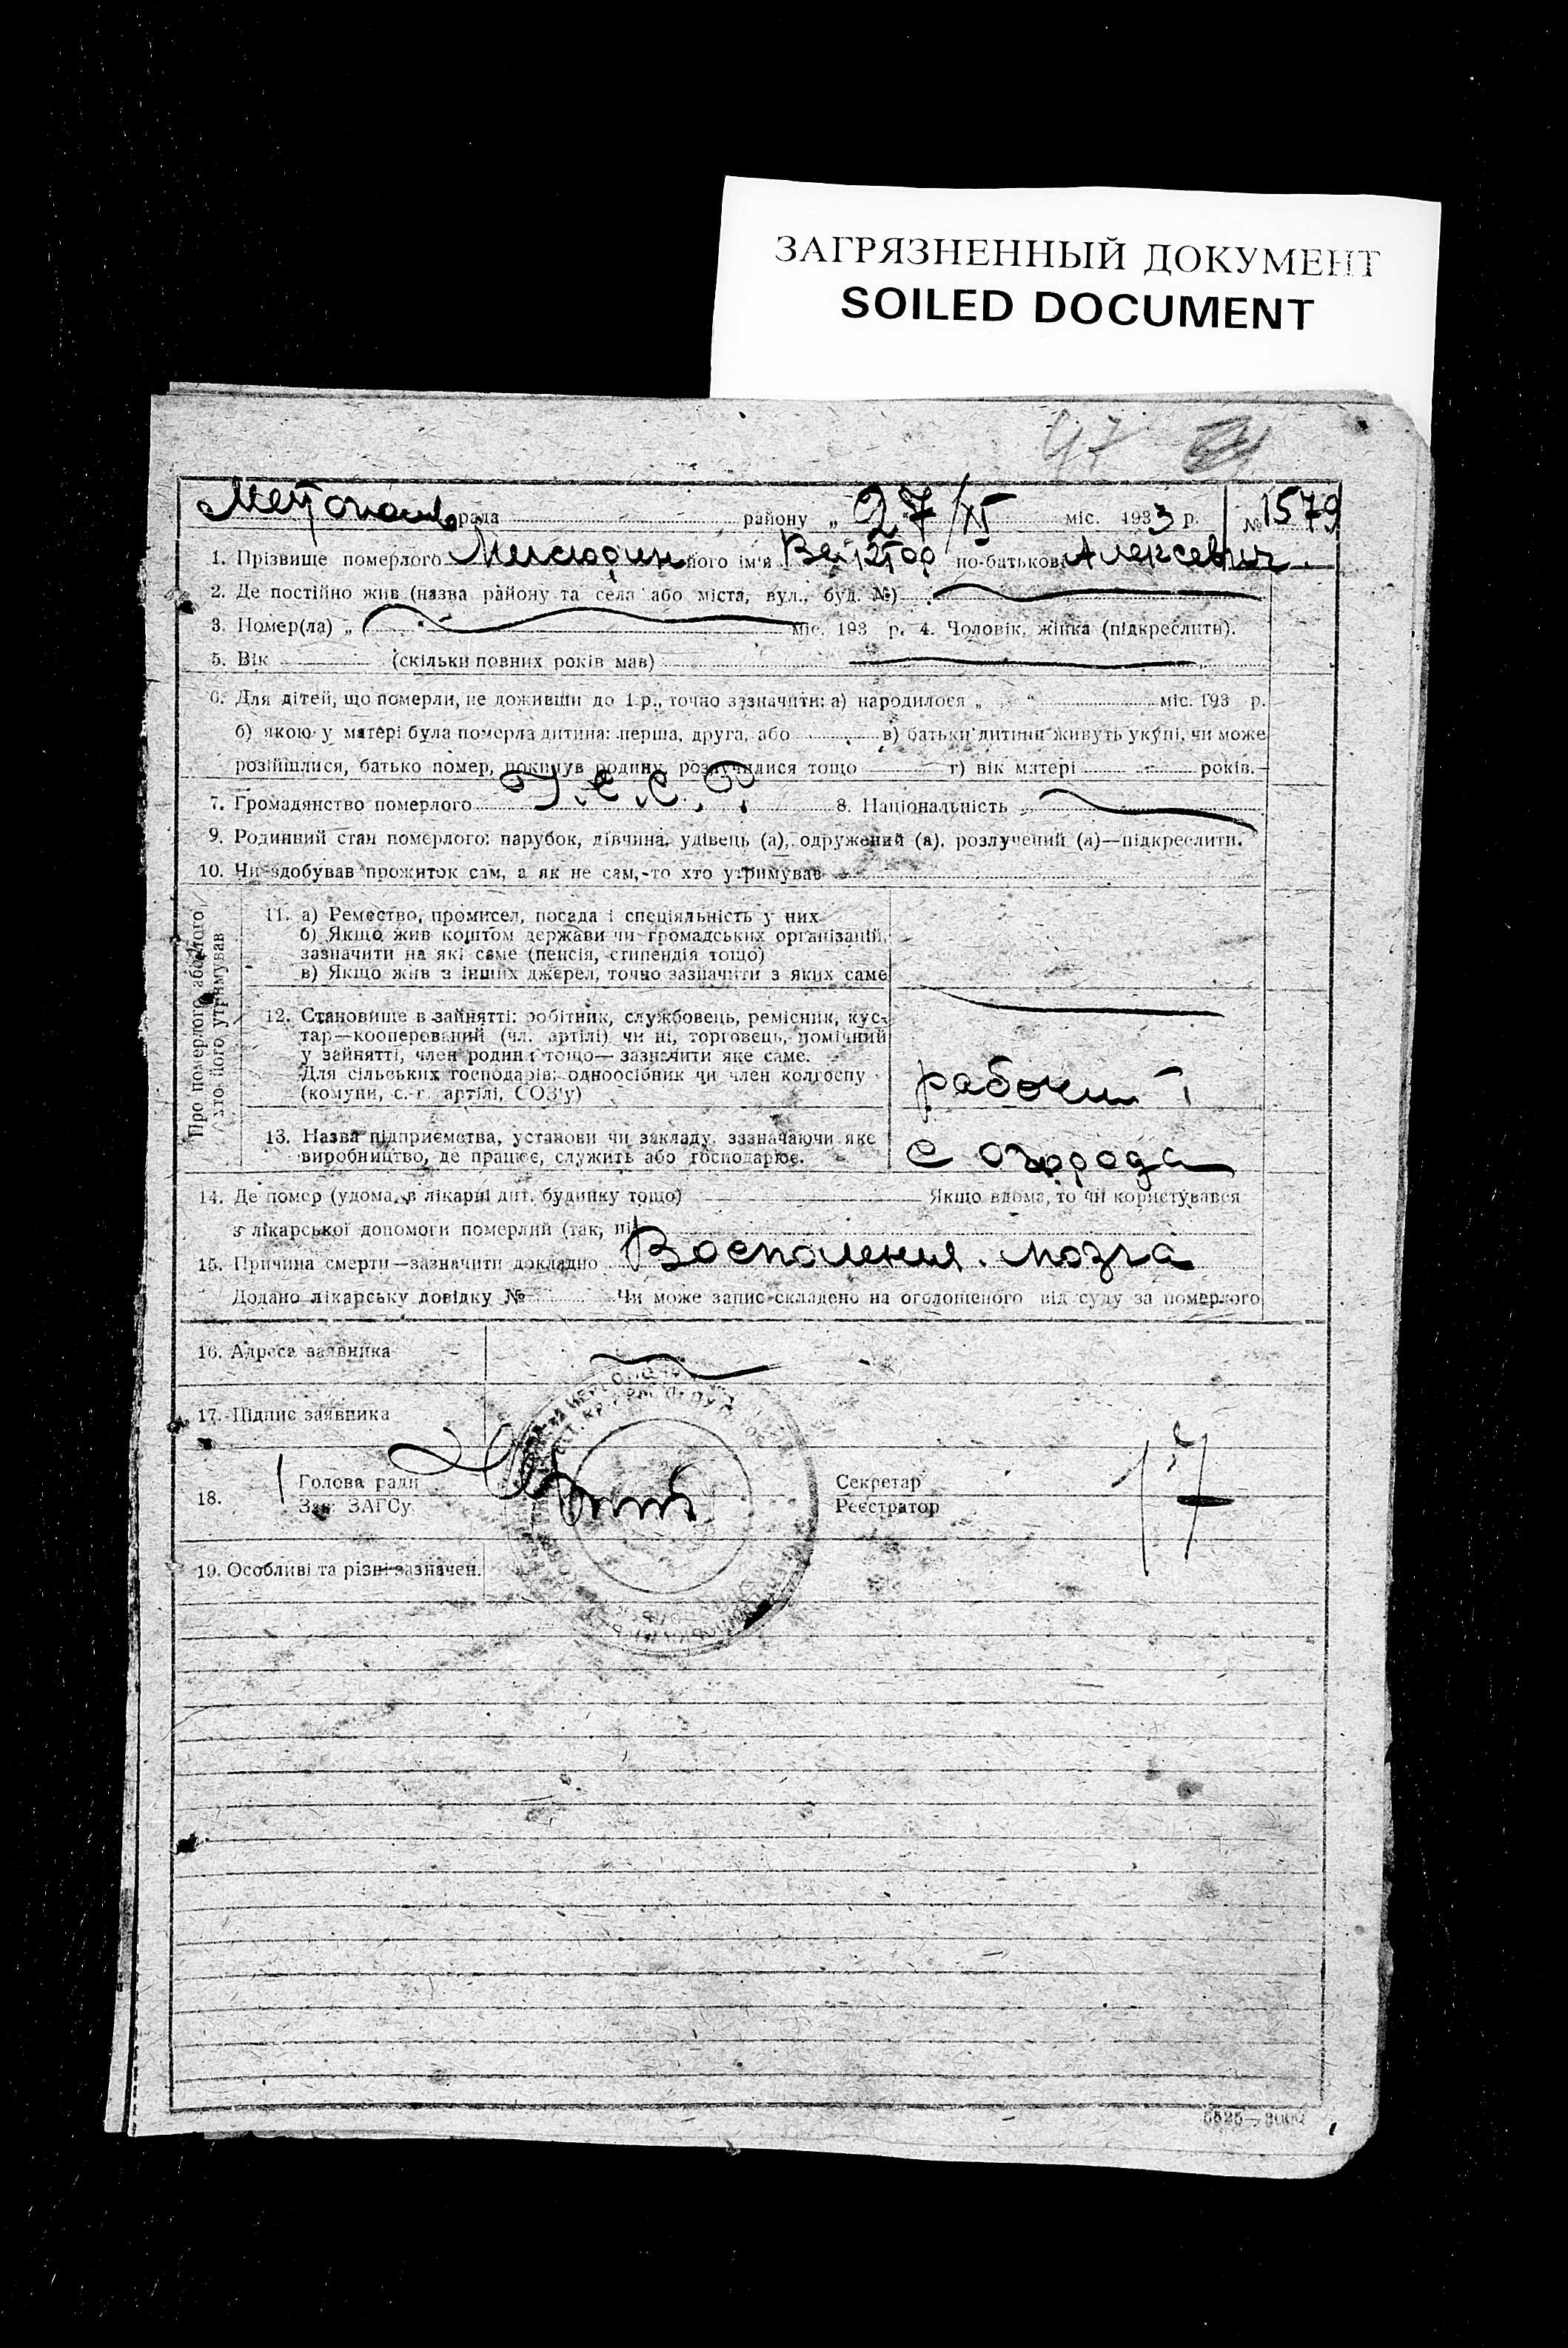 ЗАГРЯЗНЕННЫЙ ДОКУМЕНТ
SOILED DOCUMENT
47
рада района „ 27/XI міс. 1933 р. № 1579
1. Прізвище померлого Мисюдин його ім'я Вейктор по-батькові Алексевич.
2. Де постійно жив (назва району та села або міста, вул., буд. №)
3. Помер(ла) „ “ міс. 193 р. 4. Чоловік, жінка (підкреслити).
5. Вік (скільки повних років мав)
6. Для дітей, що померли, не доживши до 1 р., точно зазначити: а) народилося „ “ міс. 193 р.
б) якою у матері була померла дитина: перша, друга, або в) батьки дитини живуть укупі, чи може
розійшлися, батько помер, покинув родину, розлучилися тощо г) вік матері років.
7. Громадянство померлого У.С.С.Р. 8. Національність
9. Родинний стан померлого: парубок, дівчина, удівець (а), одружений (а), розлучений (а)—підкреслити.
10. Чи здобував прожиток сам, а як не сам,-то хто утримував
Про померлого або того хто його утримував
11. а) Ремество, промисел, посада і спеціяльність у них
б) Якщо жив коштом держави чи громадських організацій,
зазначити на які саме (пенсія, стипендія тощо)
в) Якщо жив з інших джерел, точно зазначити з яких саме
12. Становище в зайнятті: робітник, службовець, ремісник, кус-
тар—кооперований (чл. артілі) чи ні, торговець, помічний
у зайнятті, член родини тощо—зазначити яке саме.
Для сільських господарів: одноосібник чи член колгоспу
(комуни, с.-г артілі, СОЗ'у)
рабочий
13. Назва підприємства, установи чи закладу, зазначаючи яке
виробництво, де працює, служить або господарює.
с огорода
14. Де помер (удома, в лікарні дит. будинку тощо) Якщо вдома, то чи користувався
з лікарської допомоги померлий (так, ні)
15. Причина смерти—зазначити докладно Воспаления. мозга
Додано лікарську довідку № Чи може запис складено на оголошеного від суду за померлого
16. Адреса заявника
17. Підпис заявника
18. Голова ради
Зав. ЗАГСу
Секретар
Реєстратор
19. Особливі та різні зазначен.
5525—3000